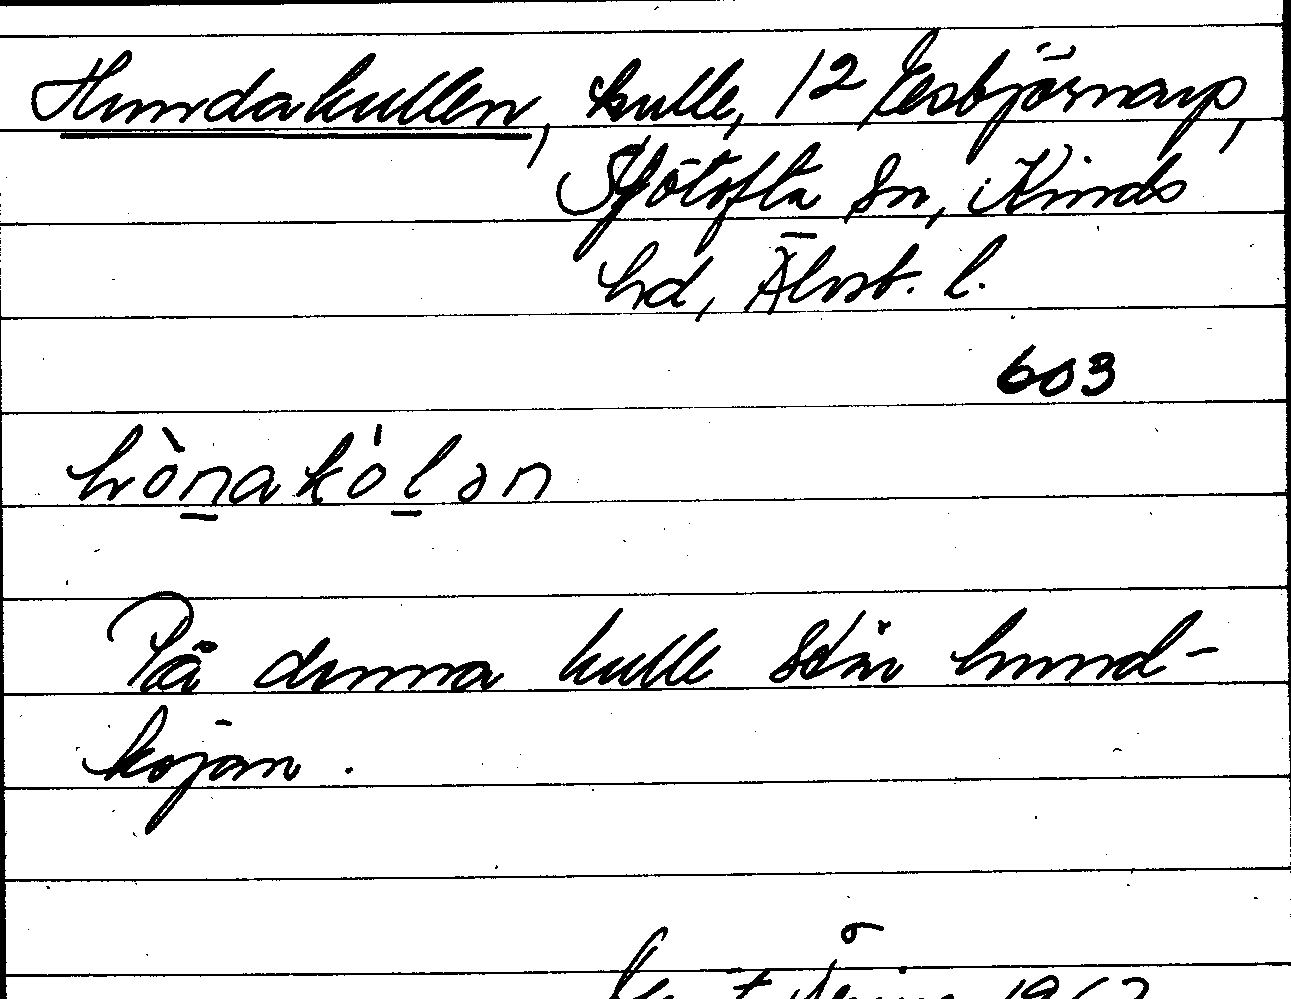 Hundakullen, kulle, 12 Esbjörnarp,
Sjötofta sn, Kinds
hd, Älvsb. l.
603
hònakólən
På denna kulle står hund-
kojan.